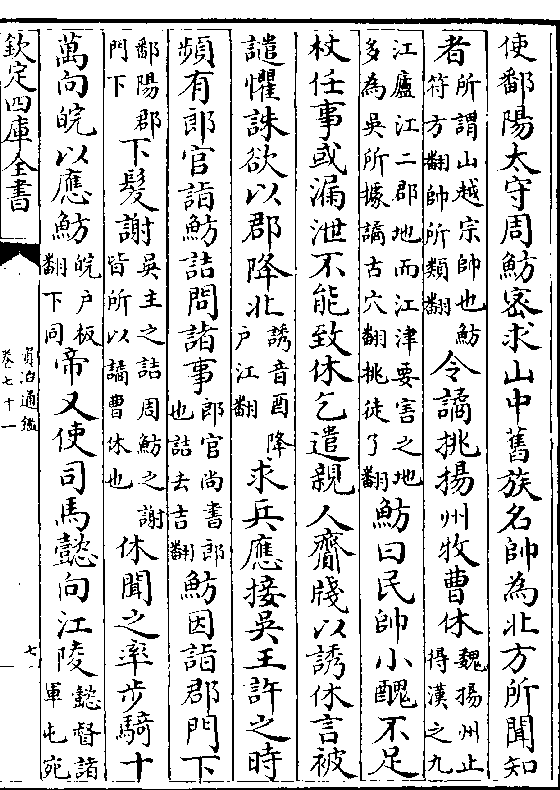 使鄱陽太守周魴密求山中舊族名帥為北方所聞知
者所謂山越宗帥也魴符方翻帥所類翻令譎挑揚州牧曹休魏揚州止得漢之九
江廬江二郡地而江津要害之地多為吳所據譎古穴翻挑徒了翻魴曰民帥小醜不足
杖任事或漏泄不能致休乞遣親人齎牋以誘休言被
譴懼誅欲以郡降北誘音酉降戶江翻求兵應接吳王許之時
頻有郎官詣魴詰問諸事郎官尚書郎也詰去吉翻魴因詣郡門下
鄱陽郡門下下髮謝吳主之詰周魴之謝皆所以譎曹休也休聞之率步騎十
萬向皖以應魴皖戶板翻下同帝又使司馬懿向江陵懿督諸軍屯宛
欽定四庫全書
資治通鑑
卷七十一
七